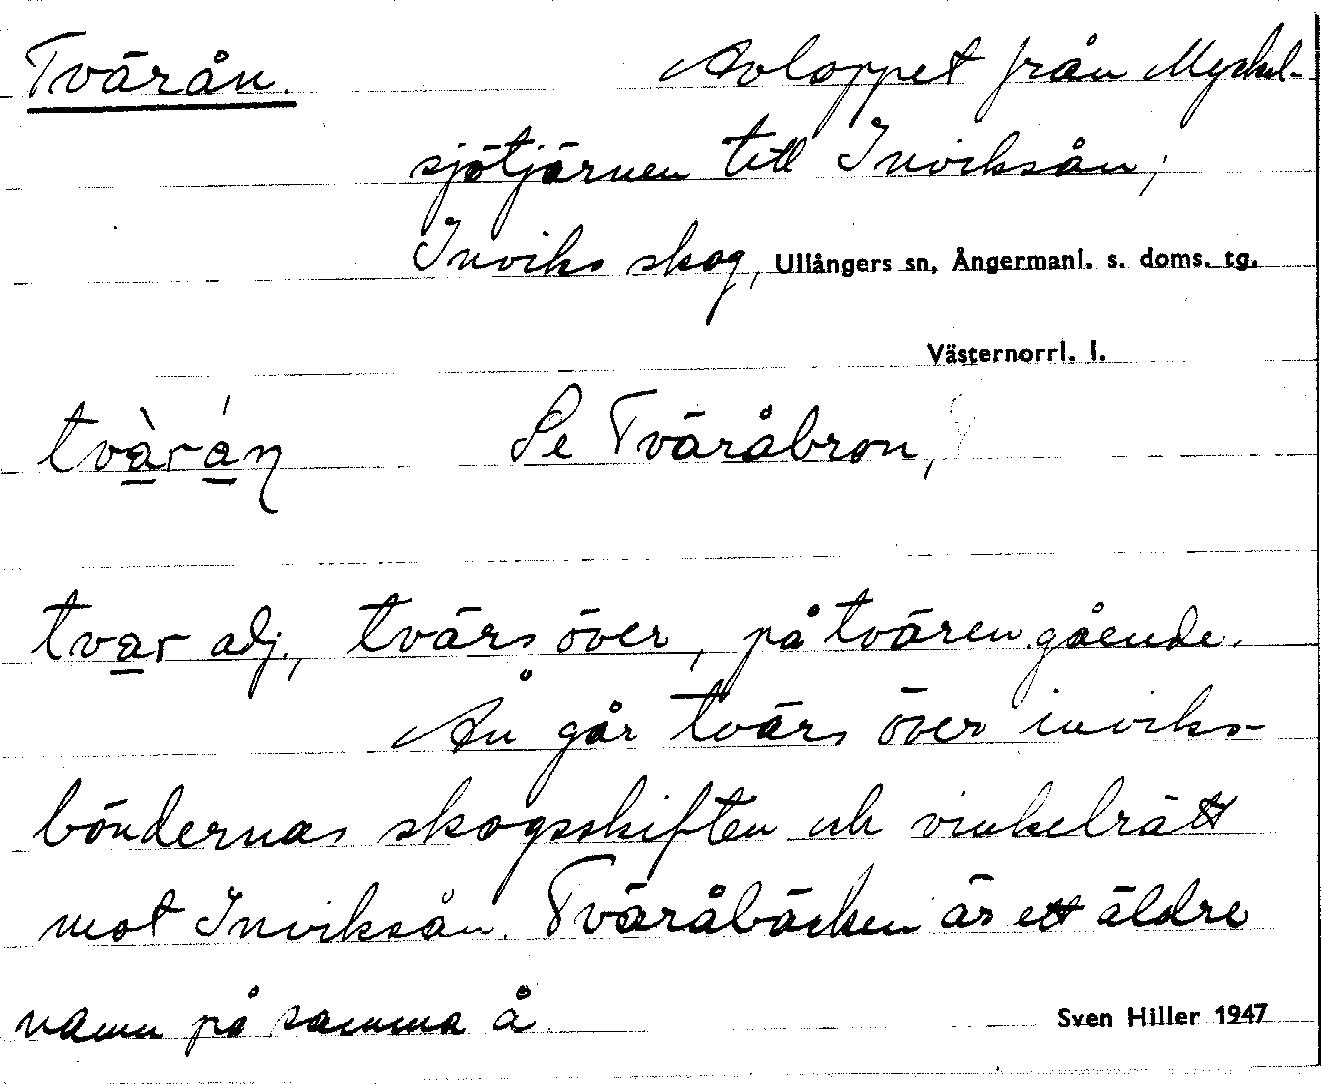 Tvärån. Avloppet från Myckel-
sjötjärnen till Inviksån;
Inviks skog, Ullångers sn, Ångermanl. s. doms. tg.
Västernorrl. l.
tvàrán Se Tväråbron,
tvar adj., tvärs över, på tvären gående.
Ån går tvärs över inviks-
böndernas skogsskiften och vinkelrätt
mot Inviksån. Tväråbäcken är ett äldre
namn på samma å
Sven Hiller 1947